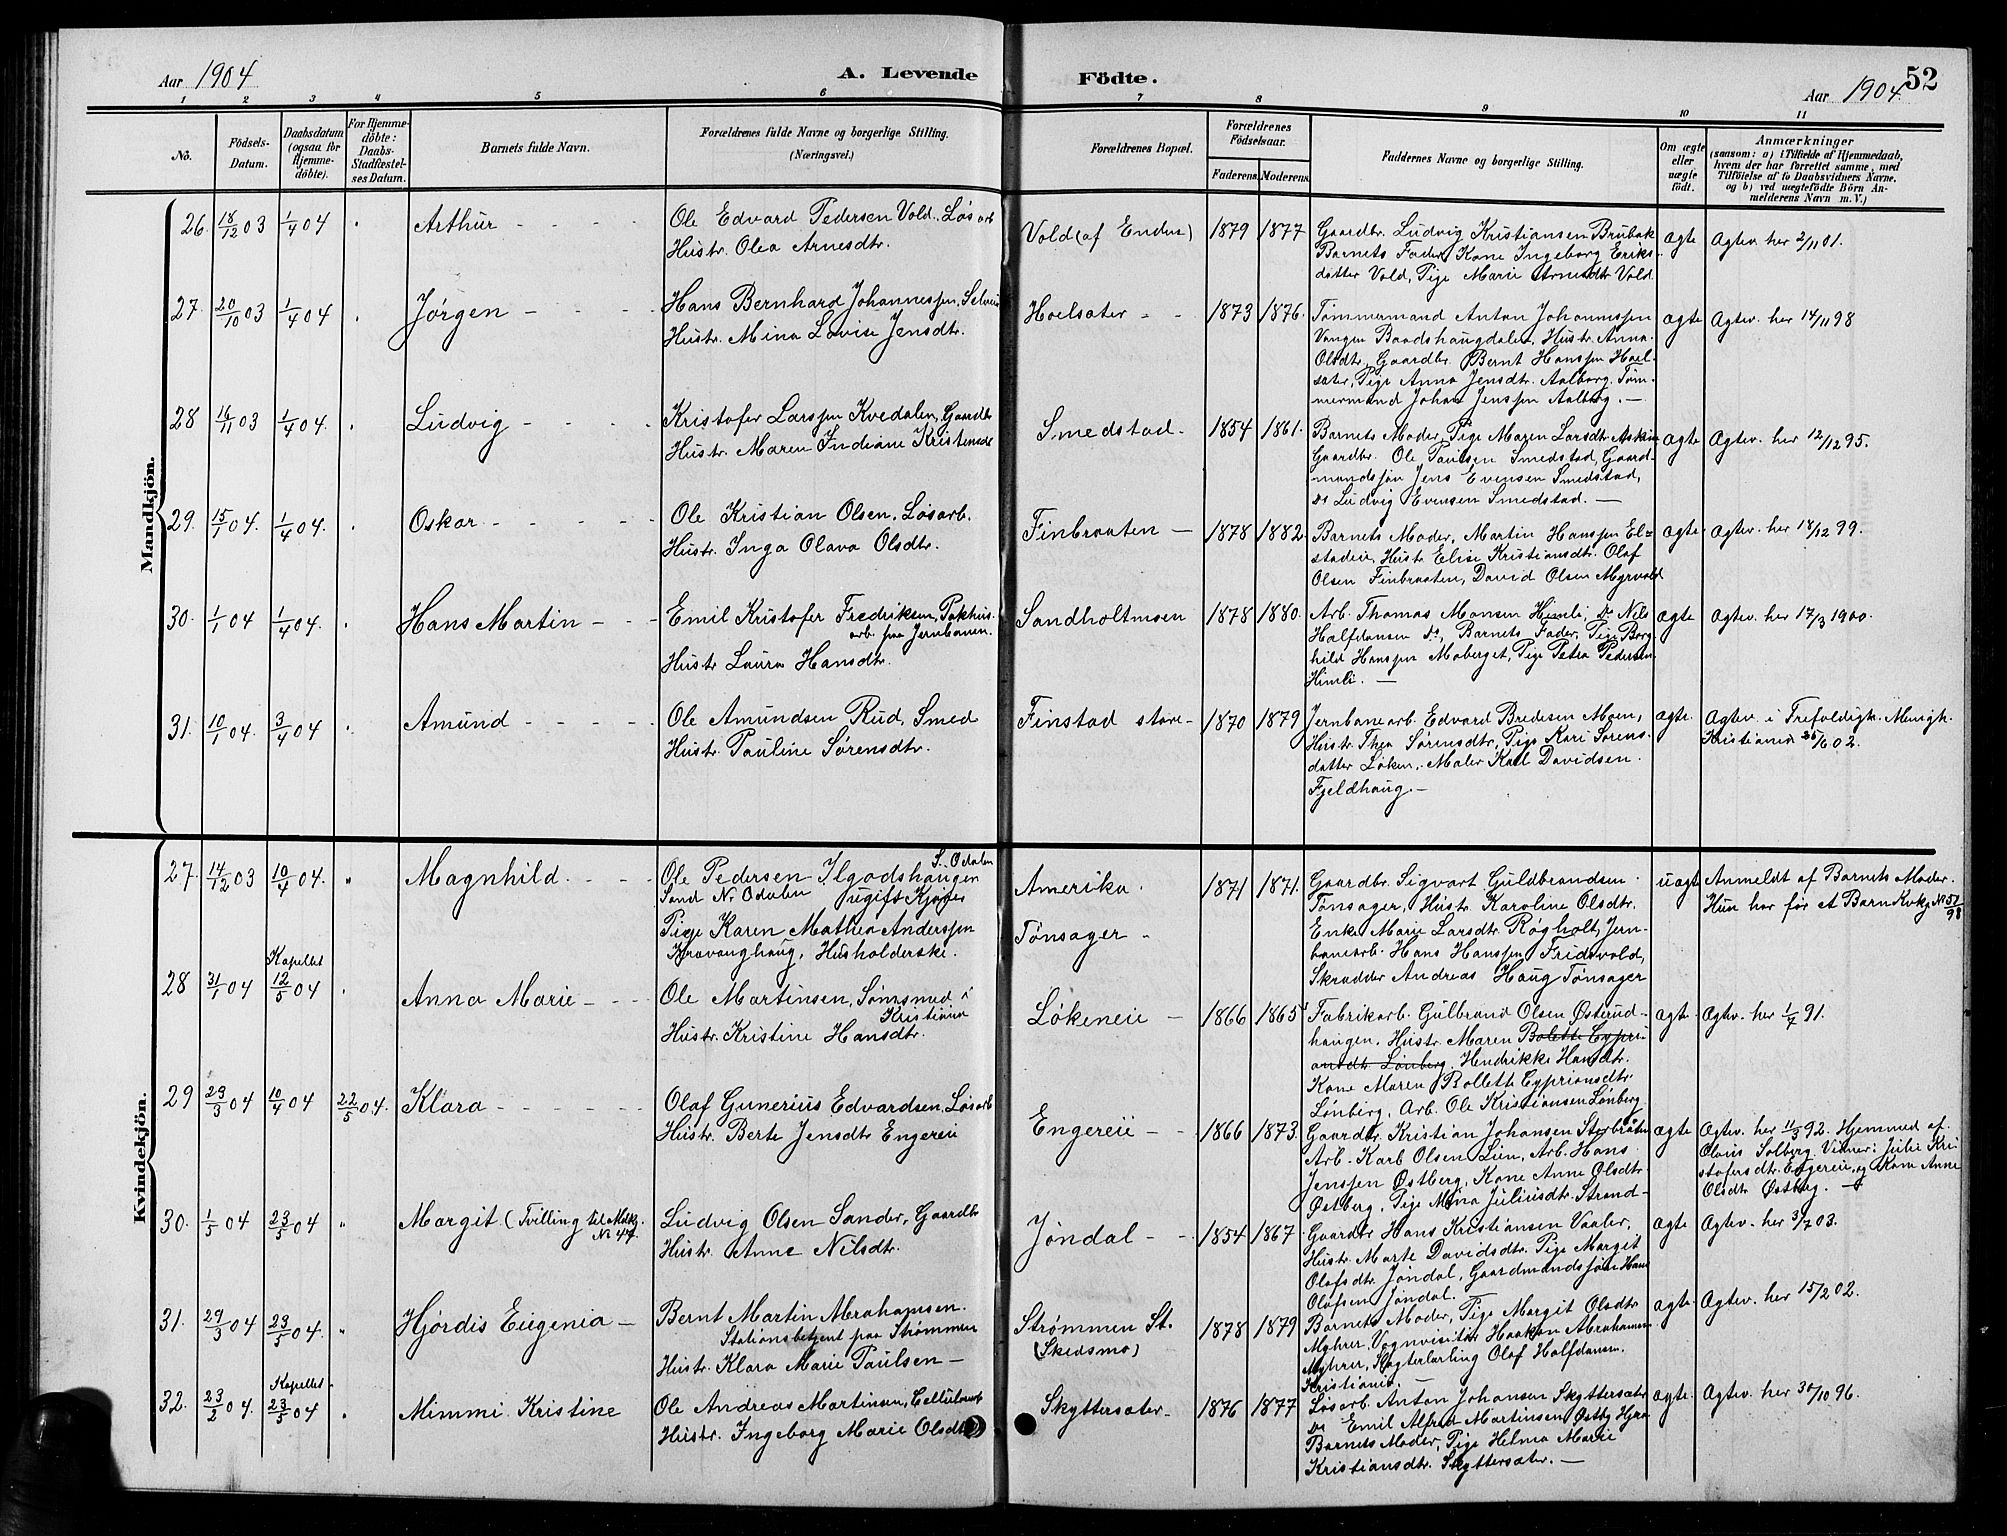 Aar 1904
A. Levende Födte.
52
Aar 1904.
1 2 3 4 5 6 7 8 9 10 11
No.
Födsels-
Datum.
Daabsdatum
(ogsaa for
Hjemme-
döbte).
For Hjemme-
döbte:
Daabs-
Stadfæstel-
ses Datum.
Barnets fulde Navn.
Forældrenes fulde Navne og borgerlige Stilling.
(Næringsvei.)
Forældrenes Bopæl.
Forældrenes
Födselsaar.
Faderens. Moderens.
Faddernes Navne og borgerlige Stilling.
Om ægte
eller
uægte
födt.
Anmærkninger
(saasom: a) i Tilfælde af Hjemmedaab,
hvem der har forrettet samme, med
Tilföielse af to Daabsvidners Navne,
og b) ved uægtefödte Börn An-
melderens Navn m. V.)
Mandkjön.
26. 18/12 03 1/4 04 " Arthur - - -
Ole Edvard Pedersen Vold. Løsarb
Hustr. Olea Arnesdtr.
Vold (af Enden) 1879 1877
Gaardbr. Ludvig Kristiansen Brubak
Barnets Fader, Kone Ingeborg Eriks-
datter Vold, Pige Marie Arnesdtr Vold
ægte Ægtev. her 2/11 01.
27. 20/10 03 1/4 04 " Jørgen - - -
Hans Bernhard Johannesen, Selveier
Hustr. Mina Lovise Jensdtr.
Hoelsæter - - 1873 1876.
Tømmermand Anton Johannessen
Vangen Baadshaugdalen, Hustr. Anna
Olsdtr, Gaardbr. Bernt Hanssen Hoel-
sæter, Pige Anna Jensdtr. Aalborg. Tøm-
mermand Johan Jenssen Aalborg. —
ægte Ægtev. her 14/11 98
28 16/11 03 1/4 04. " Ludvig - - - -
Kristofer Larssen Kvedalen, Gaardbr
Hustr. Maren Indiane Kristensdtr
Smedstad. 1854 1861.
Barnets Moder, Pige Maren Larsdtr Askim
Gaardbr. Ole Paulsen Smedstad, Gaard-
mandssøn Jens Evensen Smedstad,
Do Ludvig Evensen Smedstad. —
ægte Ægtev. her 12/12 95.
29. 15/1 04. 1/4 04. " Oskar - - - -
Ole Kristian Olsen. Løsarb.
Hustr. Inga Olava Olsdtr.
Finbraaten — 1878 1882.
Barnets Moder, Martin Hanssen El-
stadeie, Hustr Elise Kristiansdtr. Olaf
Olsen Finbraaten, David Olsen Myrvold
ægte Ægtev. her 18/12 99.
30. 1/1 04 1/4 04. " Hans Martin - - -
Emil Kristofer Fredriksen, Pakhus.
arb. paa Jernbanen.
Hustr Laura Hansdtr.
Sandholtmoen 1878 1880.
Arb. Thomas Monsen Himli, Do Nils
Halfdansen Do, Barnets Fader, Pige Borg-
hild Hanssen Moberget, Pige Petra Pedersen
Himli. —
ægte Ægtev. her 17/3 1900.
31. 10/1 04. 3/4 04 " Amund - - - -
Ole Amundsen Rud, Smed
Hustr. Pauline Sørensdtr.
Finstad store- 1870 1879
Jernbanearb. Edvard Bredesen Moen,
Hustr. Thea Sørensdtr, Pige Kari Sørens-
datter Løken, Maler Karl Davidsen
Fjeldhaug. —
ægte. Ægtev. i Trefoldigh. Menigh.
Kristiania 26/6 02.
Kvindekjön.
27. 14/12 03 10/4 04. " Magnhild. - - -
Ole Pedersen Ilgodshaugen S. Odalen
Sand N. Odalen ugift Kjører
Pige Karen Mathea Anderssen
Kravanghaug, Husholderske.
Amerika.
Tønsager -
1871 1871.
Gaardbr. Sigvart Guldbrandsen
Tønsager, Hustr. Karoline Olsdtr.
Enke Marie Larsdtr. Røgholt, Jern-
banearb. Hans Hanssen Fridsvold,
Skrædder Andreas Haug Tønsager
uægte Anmeldt af Barnets Moder.
Hun har før et Barn Kvkj No 51/98
28 31/1 04 Kapellet 12/5 04 " Anna Marie - - -
Ole Martinsen, Sømsmed i
Kristiania
Hustr. Kristine Hansdtr.
Løkeneie - 1866 1865
Fabrikarb. Gulbrand Olsen Østerud-
haugen. Hustr. Maren Bolette Cypri-
ansdtr. Lønberg, Hendrikke Hansdtr.
Kone Maren Bollette Cypriansdtr
Lønberg, Arb. Ole Kristiansen Lønberg
ægte Ægtev. her 1/4 91.
29 29/3 04 10/4 04 22/5 04. Klara - - - -
Olaf Gunerius Edvardsen, Løsarb
Hustr. Berte Jensdtr Engereie
Engereie - - 1866 1873.
Gaardbr. Kristian Johansen Storbråten
Arb. Karl Olsen Lien, Arb. Hans
Jenssen Østberg, Kone Anne Olsdtr
Østberg, Pige Mina Juliusdtr. Strand-
ægte Ægtev. her 11/3 92. Hjemmed af
Olaus Solberg. Vidner: Julie Kri-
stofersdtr. Engereie, og Kone Anne
Olsdtr Østberg. —
30. 1/5 04 23/5 04 " Margit (Tvilling til Mdkj.
No 44.
Ludvig Olsen Sander, Gaardbr
Hustr. Anne Nilsdtr.
Jøndal - - 1854 1867
Gaardbr Hans Kristiansen Vaaler,
Hustr. Marte Davidsdtr. Pige Margit
Olafsdtr. Jøndal, Gaardmandssøn Hans
Olafsen Jøndal.
ægte Ægtev. her 3/7 03.
31. 29/3 04 23/5 04. " Hjørdis Eugenia —
Bernt Martin Abrahamsen.
Stationsbetjent paa Strømmen
Hustr. Klara Marie Paulsen —
Strømmen St.
(Skedsmo)
1878 1879
Barnets Moder, Pige Margit Olsdtr
Myhrer, Vognvisitør Haakon Abrahamsen
Myhrer, Slagterlærling Olaf Halfdansen.
Kristiania. —
ægte. Ægtev. her 15/2 02.
32. 23/2 04. Kapellet 23/5 04 " Mimmi Kristine
Ole Andreas Martinsen, Cellulosearb
Hustr. Ingeborg Marie Olsdtr
Skyttersæter- 1876 1877
Løsarb. Anton Johansen Skyttersæter
Do Emil Alfred Martinsen Østby
Barnets Moder, Pige Helma Marie
Kristiansdtr. Skyttersæter. —
ægte. Ægtev. her 30/10 96.